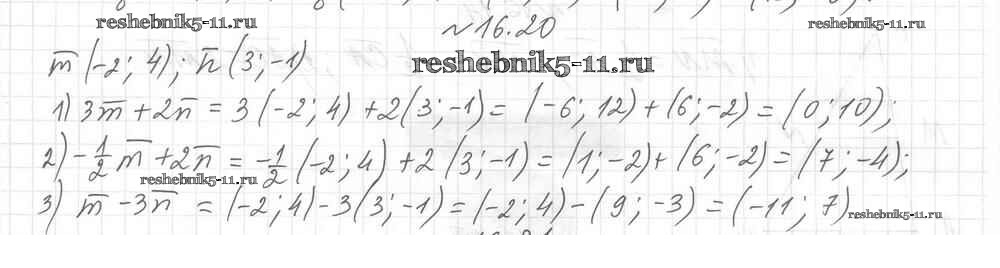 reshebnik5-11.ru
№16.20
reshebnik5-11.ru
m̅(-2; 4); n̅(3; -1)
reshebnik5-11.ru
1) 3m̅ + 2n̅ = 3(-2; 4) + 2(3; -1) = (-6; 12) + (6; -2) = (0; 10);
2) -1/2 m̅ + 2n̅ = -1/2 (-2; 4) + 2(3; -1) = (1; -2) + (6; -2) = (7; -4);
reshebnik5-11.ru
3) m̅ - 3n̅ = (-2; 4) - 3(3; -1) = (-2; 4) - (9; -3) = (-11; 7)
reshebnik5-11.ru